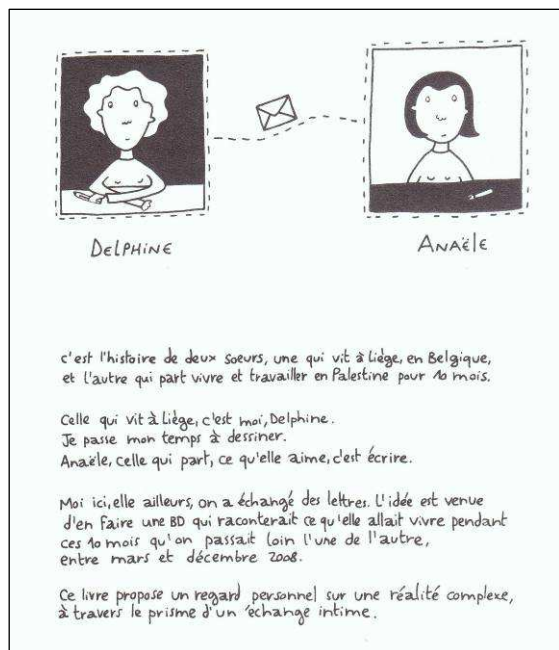 DELPHINE
ANAËLE
c'est l'histoire de deux soeurs, une qui vit à Liège, en Belgique,
et l'autre qui part vivre et travailler en Palestine pour 10 mois.
Celle qui vit à Liège, c'est moi, Delphine.
Je passe mon temps à dessiner.
Anaële, celle qui part, ce qu'elle aime, c'est écrire.
Moi ici, elle ailleurs, on a échangé des lettres. L'idée est venue
d'en faire une BD qui raconterait ce qu'elle allait vivre pendant
ces 10 mois qu'on passait loin l'une de l'autre,
entre mars et décembre 2008.
Ce livre propose un regard personnel sur une réalité complexe,
à travers le prisme d'un échange intime.